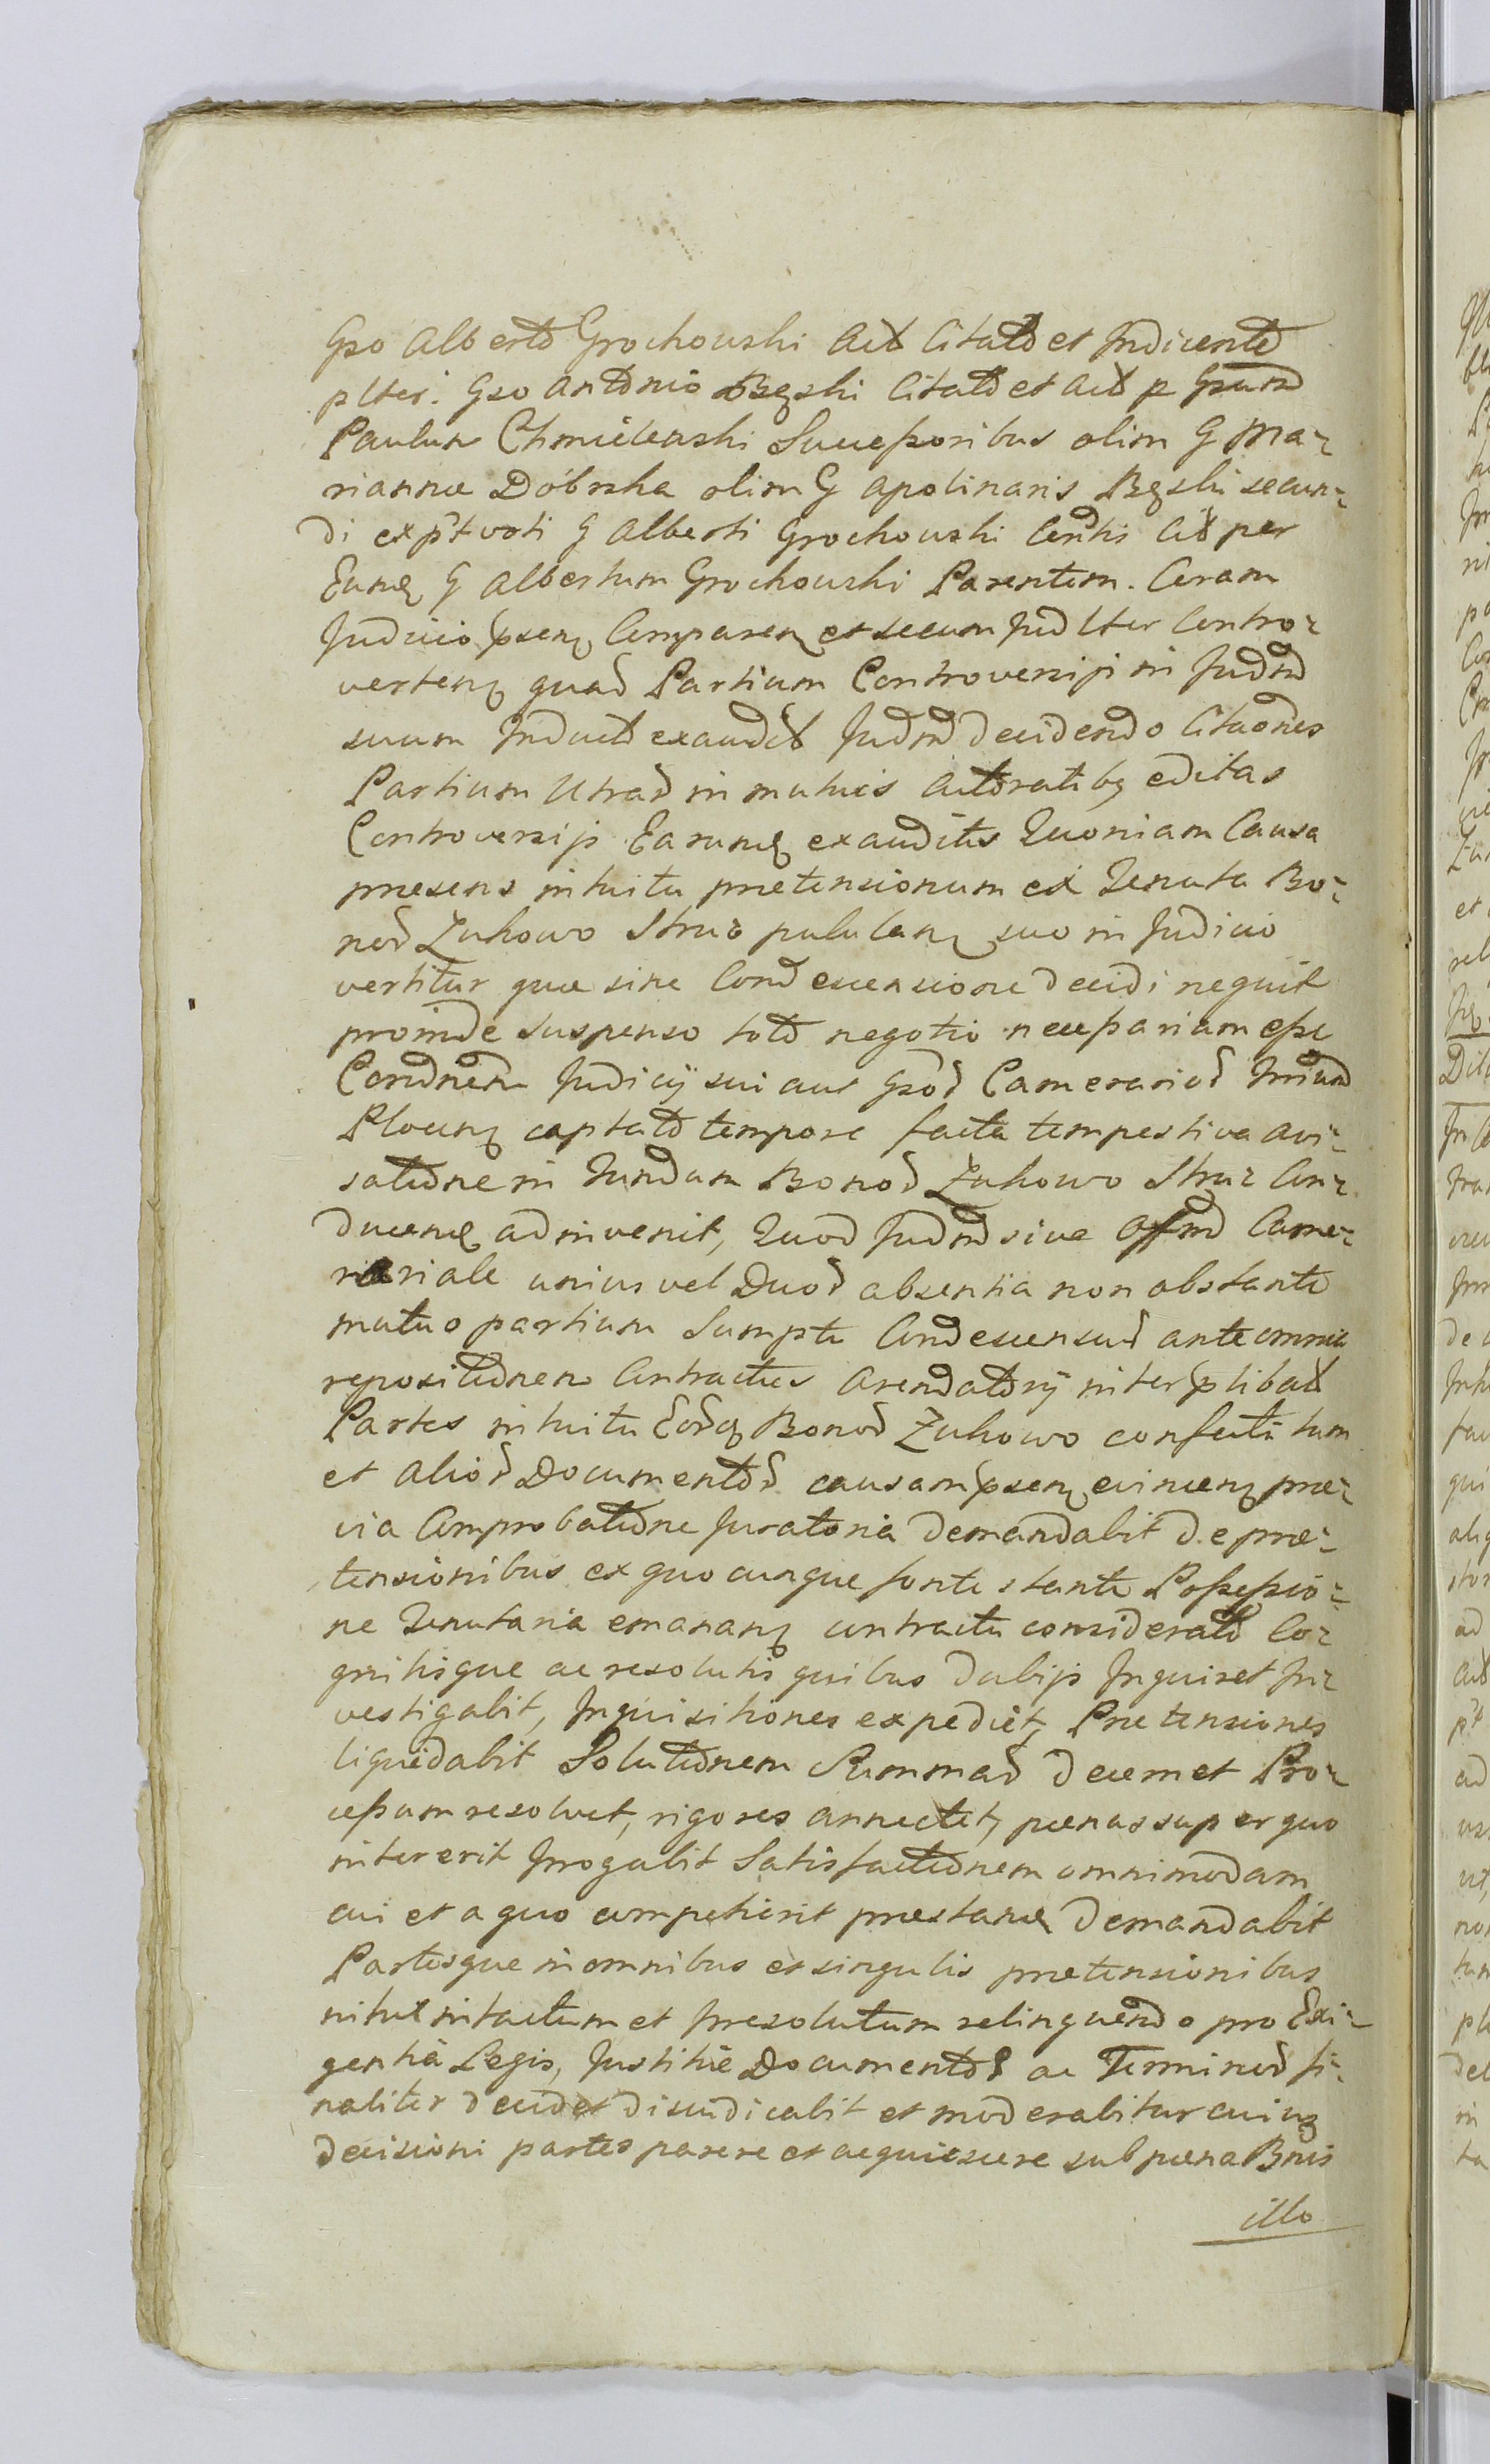 Gso Alberto Grochowski Act Citato et Indicente
plter. Gso Antonio Bęski Citato et Act p Gsum
Paulum Chmielewski Successoribus olim G Ma-
riannæ Dóbrska olim G Apolinaris Bęski secun-
di expt voti G Alberti Grochowski Contis Cit per
Eunq G Albertum Grochowski Parentem. Coram
Judicio psenq Comparenq et secum Judlter Contro-
vertenq quad Partium Controversijs in Judm
suum Inducto exauditt Judm decidendo Citaones
Partium Utrad in mutuis Actoratibq editas
Controversijs Earumq exauditis Quoniam Causa
præsens intuitu prætensionum ex Tenuta Bo-
nod Zukowo Struś pululanq suo in Judicio
vertitur quæ sine Condescensione decidi nequit
proinde suspenso toto negotio necessariam esse
Condnem Judicij sui aut Gsod Camerariod Trrium
Plocenq captato tempore facta tempestiva avi-
satione in fundum Bonod Zukowo Struś Con-
ducenq adinvenit, Quod Judm sive Offm Came-
rariale unius vel Duod absentia non obstante
mutuo partium Sumptu Condescensud ante omnia
repositionem Contractus Arendatorij inter plibatt
Partes intuitu Eodq Bonod Zukowo confecti tum
et aliod Documentod causam psenq evincenq præ-
via Comprobatione Juratoria demandabit de præ-
tensionibus ex quocunque fonte stante Possessio-
ne Tenutaria emananq contractu considerato Co-
gnitisque ac resolutis quibus dubijs Inquiret In-
vestigabit, Inquisitiones expediet, Prætensiones
liquidabit Solutionem Summad decernet Pro-
cessum resolvet, rigores annectet, pœnas super quo
intererit Irrogabit Satisfactionem omnimodam
cui et a quo competierit præstanq demandabit
Partesque in omnibus et singulis prætensionibus
nihil intactum et Irresolutum relinquendo pro Exi-
gentia Legis, Justitiæ Documentod ac Terminod fi-
naliter decidet disiudicabit et moderabitur cuiuq
decisioni partes parere et acquiescere sub pœna Bnis
illo